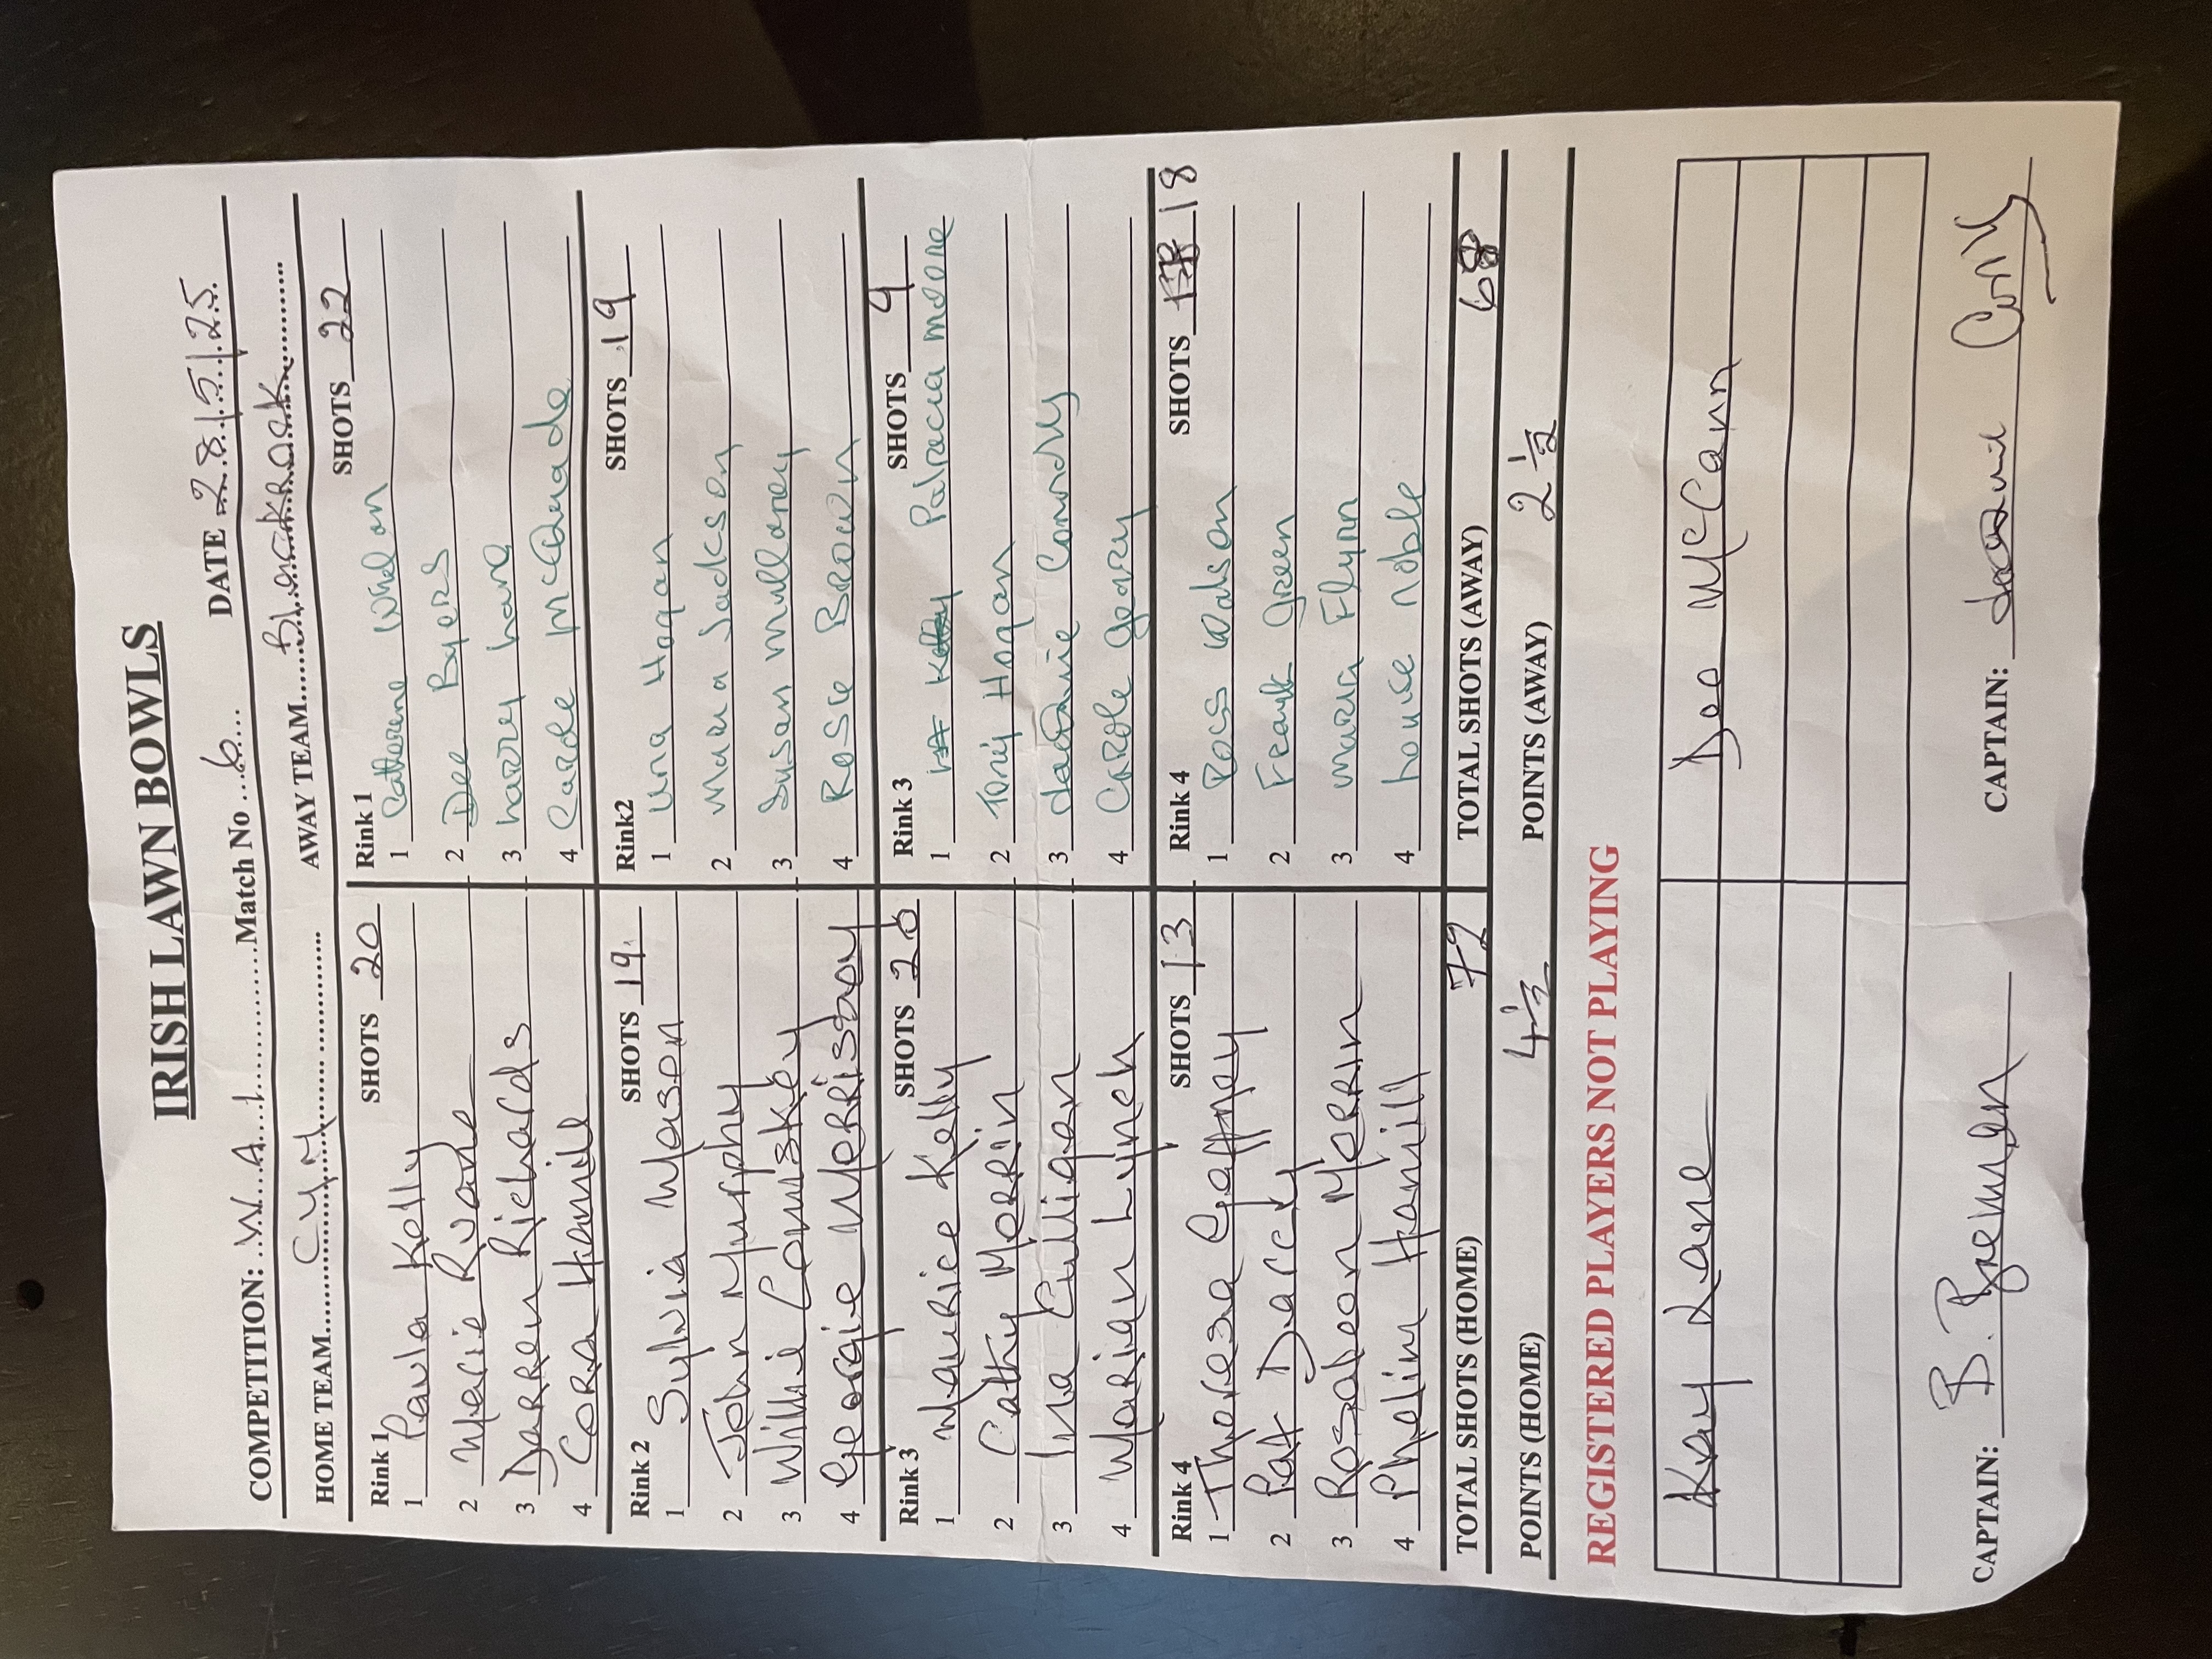 IRISH LAWN BOWLS
COMPETITION: W.A.1 Match No 6 DATE 28/5/25
HOME TEAM CYM AWAY TEAM Blackrock
Rink 1 SHOTS 20
1 Paula Kelly
2 Marie Ruane
3 Darren Richards
4 Cora Hamill
Rink 1 SHOTS 22
1 Catherine Whelan
2 Dee Byers
3 harry hare
4 Carole McQuade
Rink 2 SHOTS 19
1 Sylvia Mason
2 John Murphy
3 Willie Comiskey
4 Georgie Morrissey
Rink2 SHOTS 19
1 Una Hogan
2 Maura Jackson
3 Susan Mullaney
4 Rose Brown
Rink 3 SHOTS 20
1 Maurice Kelly
2 Cathy Merrin
3 Ina Culligan
4 Marian Lynch
Rink 3 SHOTS 9
1 Patracia
2 Tony Hogan
3 Connolly
4 Carole Geary
Rink 4 SHOTS 13
1 Theresa Gaffney
2 Pat Darcy
3 Rosaleen Merrin
4 Phelim Hamill
Rink 4 SHOTS 18
1 Ross Watson
2 Frank Green
3 Maura Flynn
4 house noble
TOTAL SHOTS (HOME) 72 TOTAL SHOTS (AWAY) 68
POINTS (HOME) 4½ POINTS (AWAY) 2½
REGISTERED PLAYERS NOT PLAYING
Kay Lane Dee McCann
CAPTAIN: B. CAPTAIN: